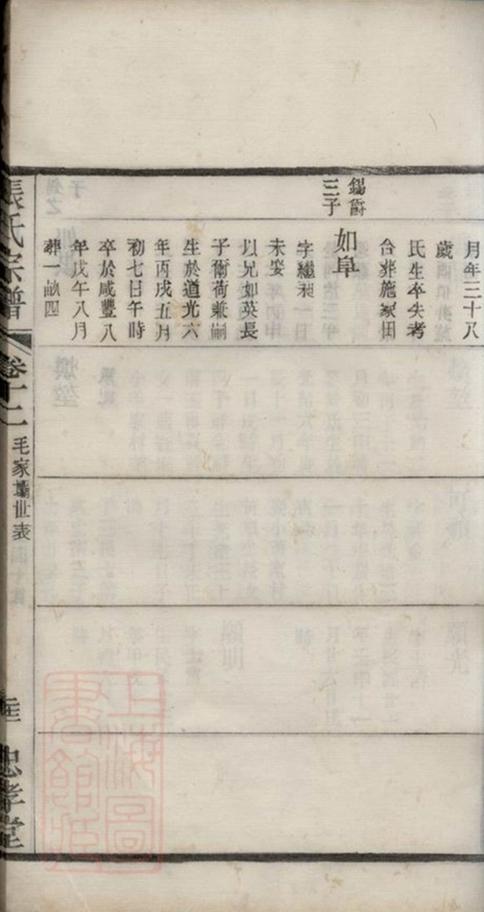 月年三十八
歲
氏生卒失考
合葬施家田
錫爵
三子
如阜
字繼昶
未娶
以兄如英長
子爾荷兼嗣
生於道光六
年丙戌五月
初七日午時
卒於咸豐八
年戊午八月
葬一畝四
張氏宗譜
卷十二
毛家壩世表
忠孝堂
上海圖
書館藏